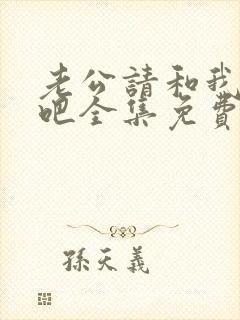 老公請和我
吧全集免費
孫天義